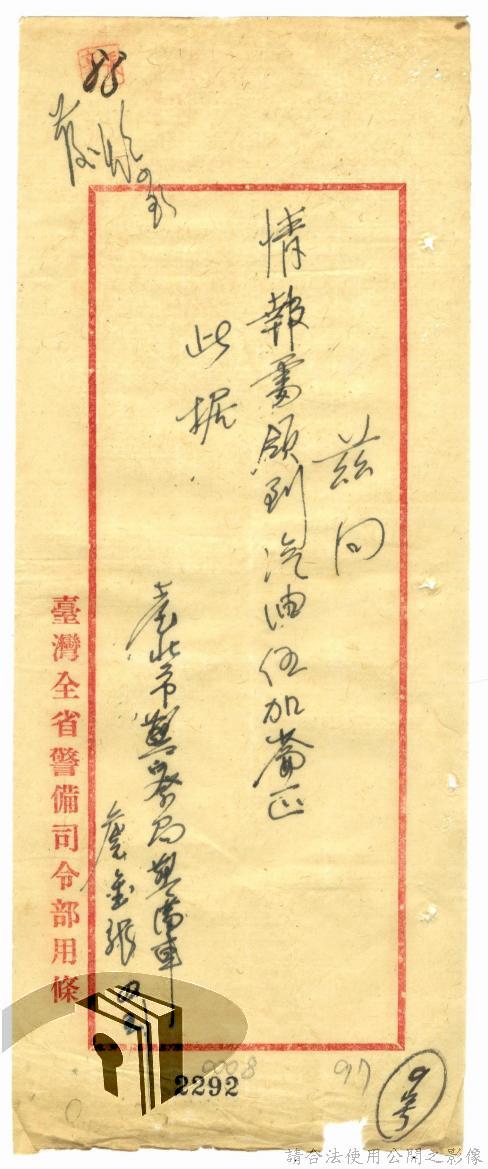 茲向
情報處領到汽油伍加侖正
此据
臺北市警察局警備車
詹金張
臺灣全省警備司令部用條
0008
97
9号
2292
請合法使用公開之影像